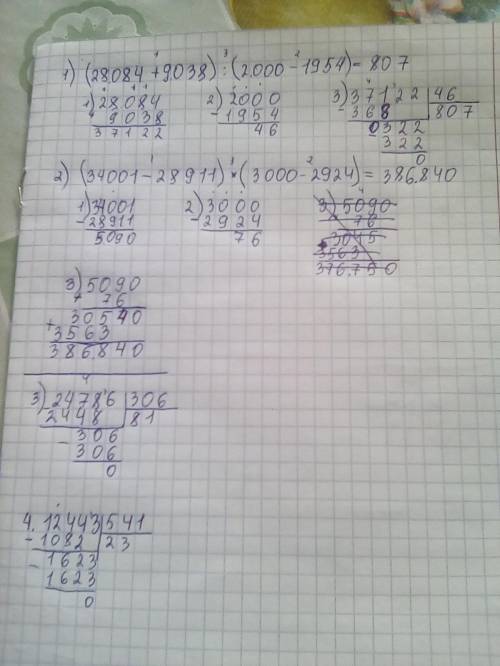 1) (28084+9038):(2000-1954)=807
1) 28084 2) 2000 3) 37122 | 46
+ 9038 - 1954 - 368 | 807
37122 46 0322
322
0
2) (34001-28911)*(3000-2924)=386.840
1) 34001 2) 3000 3) 5090
- 28911 - 2924 76
5090 76 3045
3563
376.750
3) 5090
* 76
+ 30540
3563
386.840
3) 24786 | 306
2448 | 81
- 306
306
0
4. 12443 | 541
- 1082 | 23
- 1623
1623
0